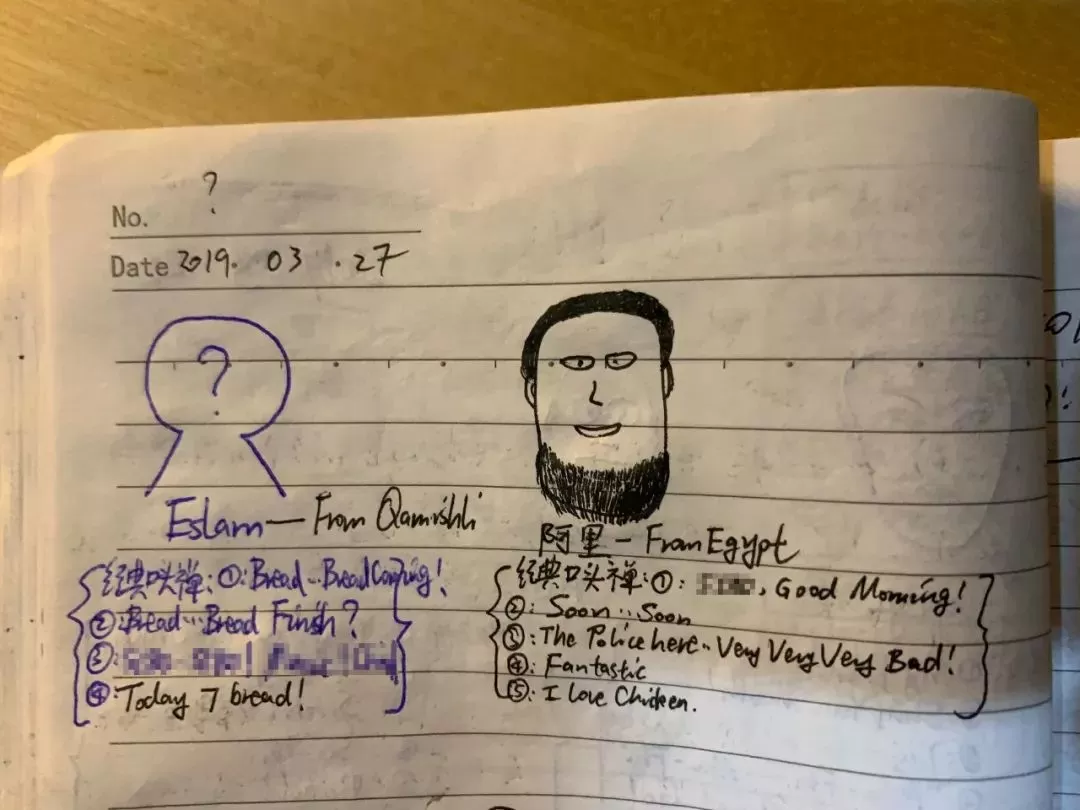 No. ?
Date 2019. 03 . 27
?
Eslam — From Qamishli
阿里 — From Egypt
经典口头禅: ①: Bread... Bread Coming!
②: Bread... Bread Finish?
③:
④: Today 7 bread!
经典口头禅: ①: , Good Morning!
②: Soon... Soon
③: The Police here.. Very Very Very Bad!
④: Fantastic
⑤: I love Chicken.